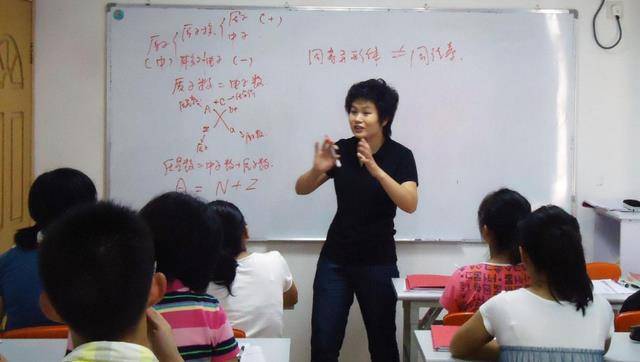 原子 { 原子核 { 质子 (+)
中子
(中) 核外电子 (-)
质子数 = 电子数
A
Z
质量数 = 中子数 + 质子数.
A = N + Z
同素异形体 ⇌ 同位素.